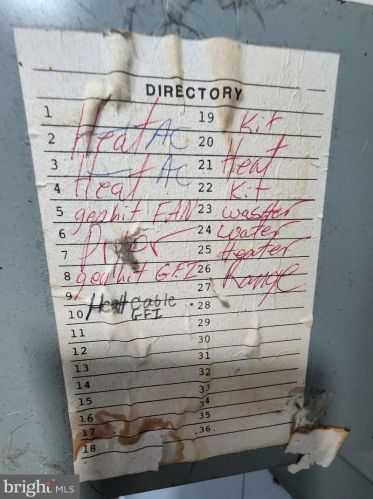 DIRECTORY
1
2 Heat AC
3
4 Heat AC
5 genhit FAN
6
7 Dryer
8 genhit GFI
9
10 Heat cable
GFI
11
12
13
14
15
16
17
18
19 Kit
20
21 Heat
22 Kit
23 washer
24 water
25 Heater
26 Range
27
28
29
30
31
32
33
34
35
36
bright MLS